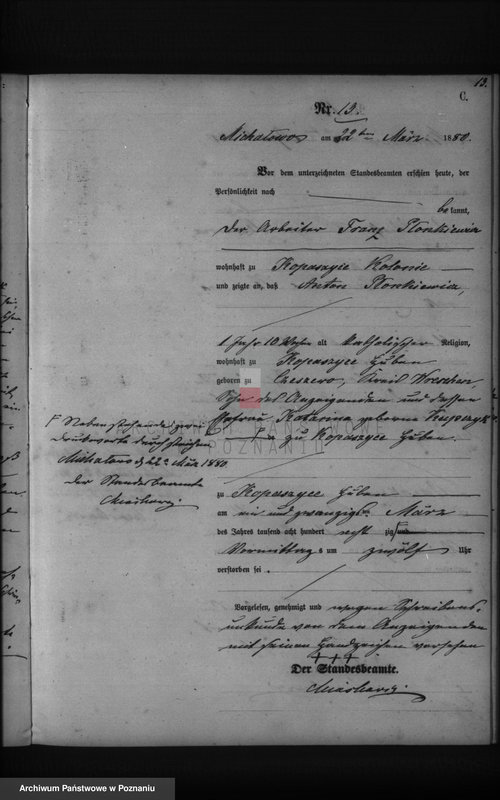 13.
C.
Nr. 13.
Michałowo am 22ten März 1880.
Vor dem unterzeichneten Standesbeamten erschien heute, der
Persönlichkeit nach
be kannt,
der Arbeiter Franz Plonkiewicz
wohnhaft zu Kopaszyce Kolonie
und zeigte an, daß Anton Plonkiewicz,
1 Jahr 10 Wochen alt katholischer Religion,
wohnhaft zu Kopaszyce Huben
geboren zu Czeszewo, Kreis Wreschen
Sohn des Anzeigenden und dessen
Ehefrau Katarina geborne
zu Kopaszyce Huben.
F Nebenstehende zwei
Druckworte durchstrichen
Michałowo d. 22. März 1880
Der Standesbeamte
zu Kopaszyce Huben
am ein und zwanzigsten März
des Jahres tausend acht hundert acht zig und
Vormittag s um zwölf Uhr
verstorben sei.
Vorgelesen, genehmigt und wegen Schreibens-
unkunde von dem Anzeigenden
mit seinen Handzeichen versehen
+++
Der Standesbeamte.
ARCHIWUM PAŃSTWOWE
W POZNANIU
Archiwum Państwowe w Poznaniu